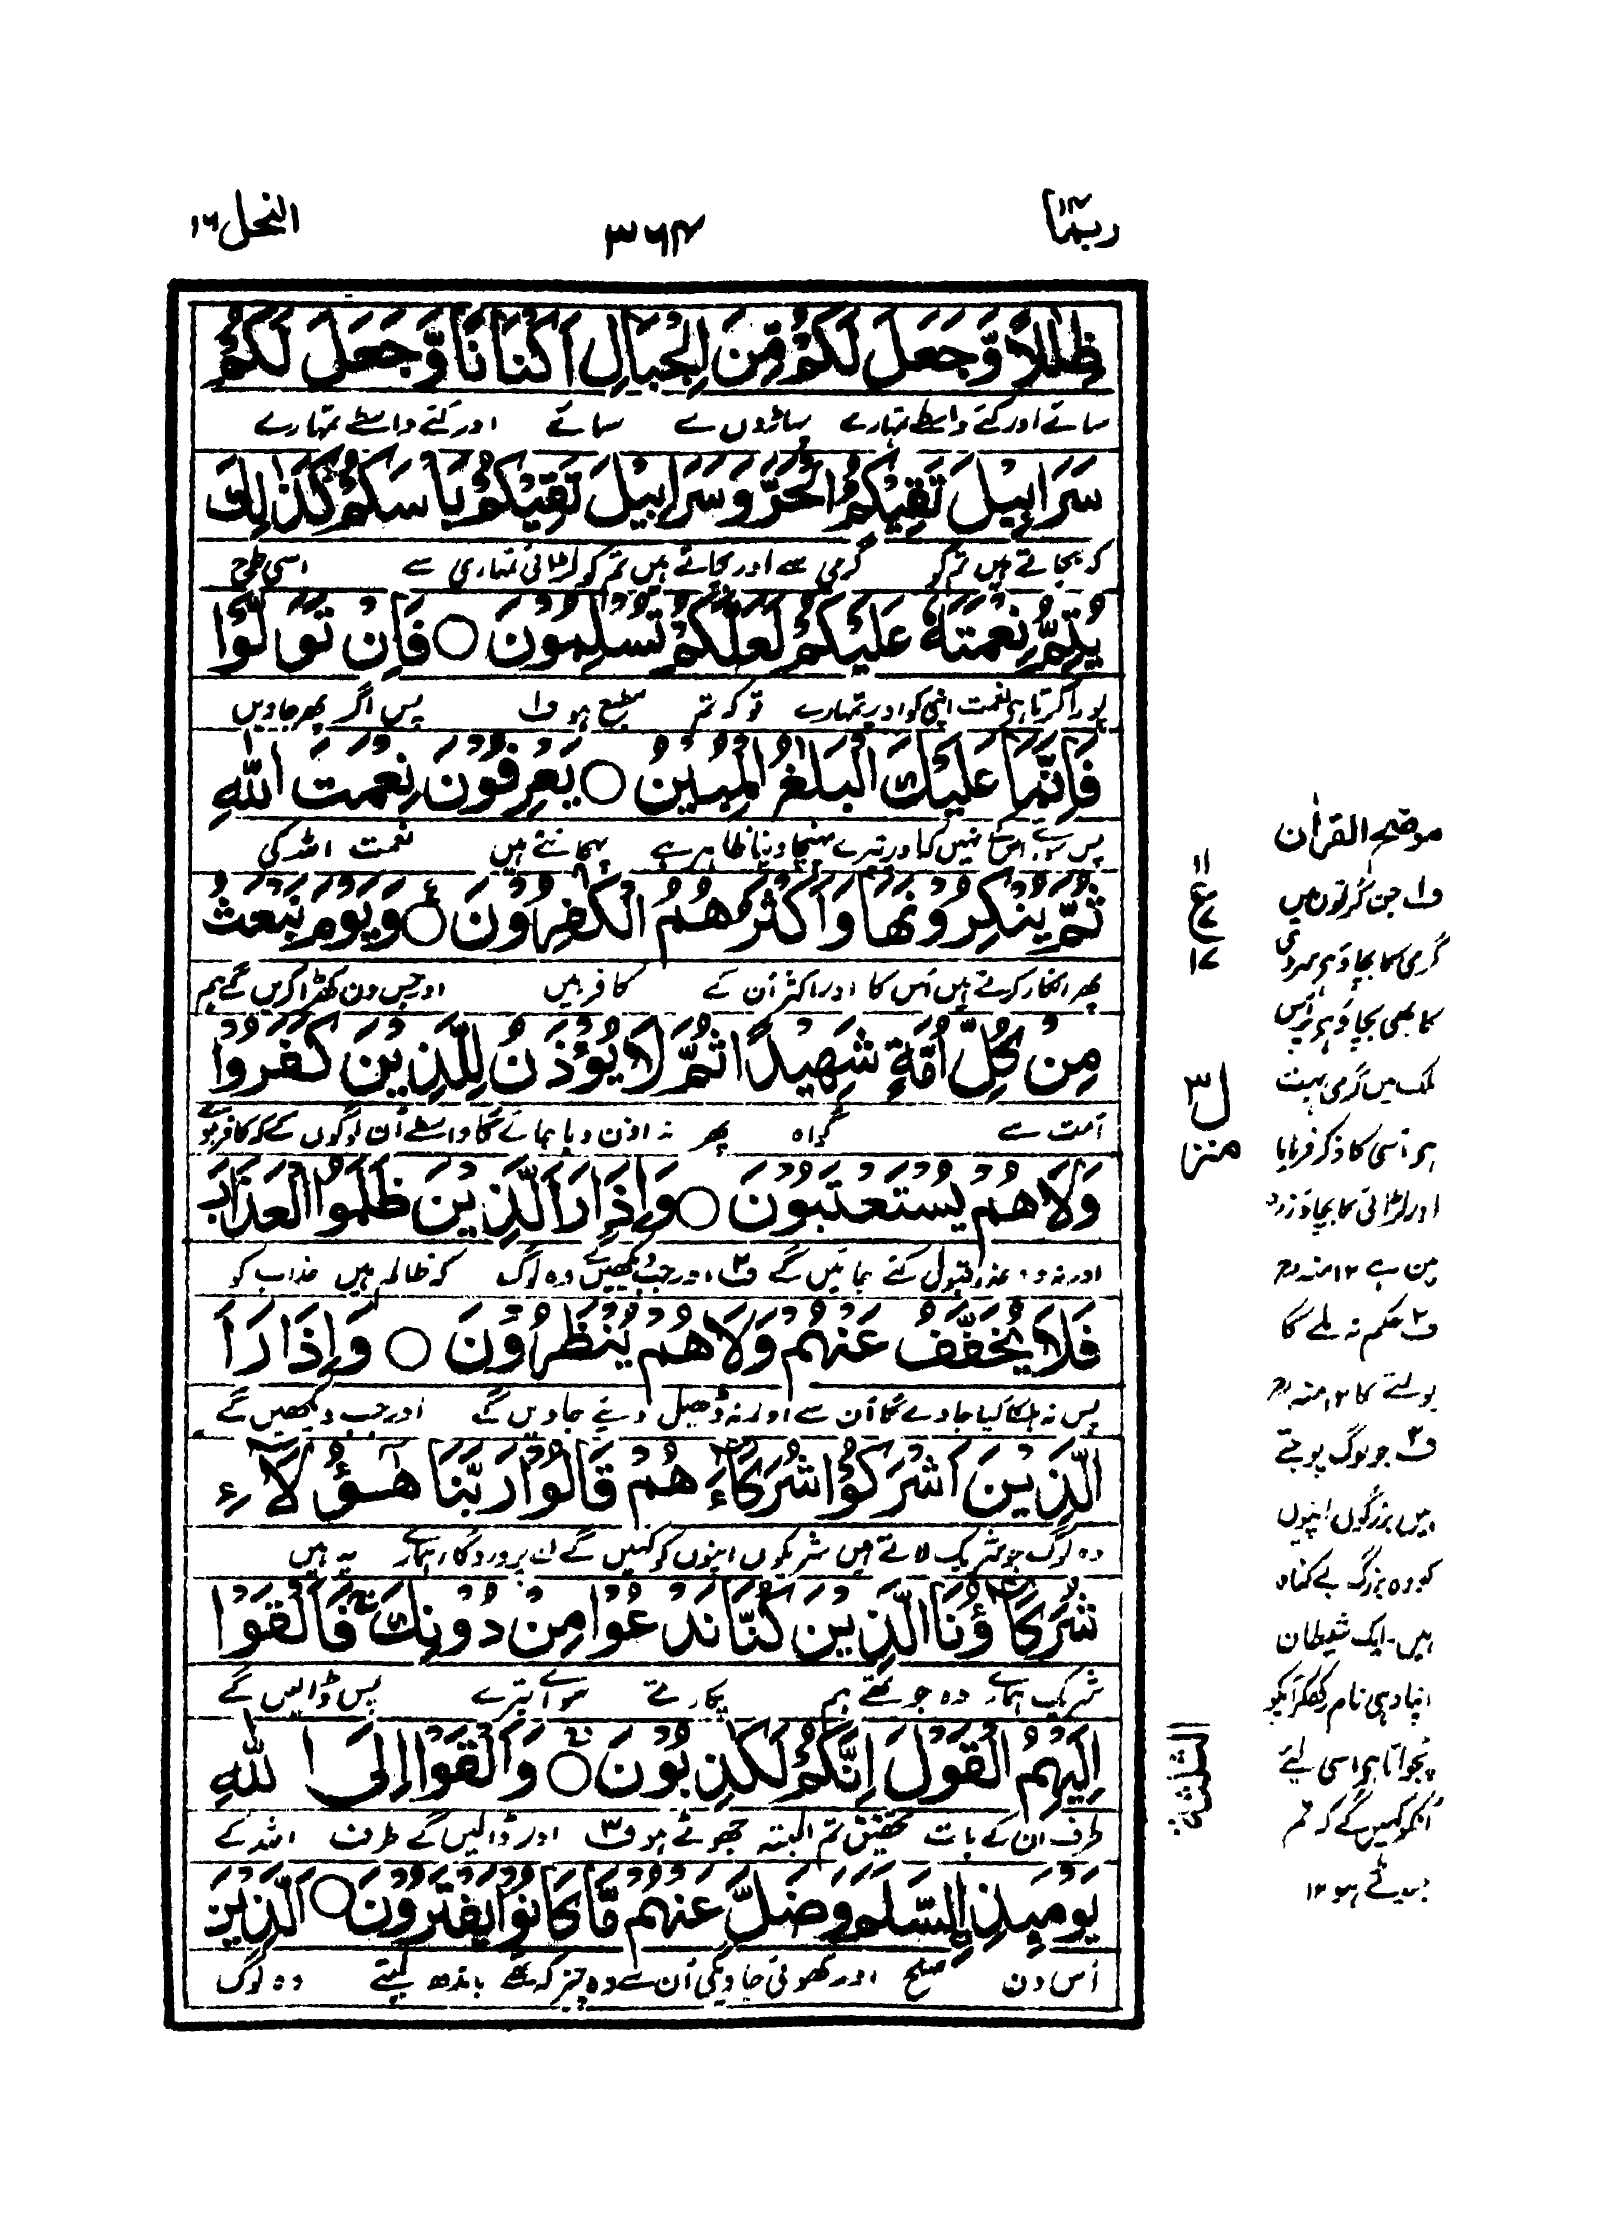 ربما ۱۴
۳۶۴
النحل ۱۶
ظِلٰلًا وَّجَعَلَ لَكُمْ مِّنَ الْجِبَالِ اَكْنَانًا وَّجَعَلَ لَكُمْ
سائے اور کئے واسطے تمہارے پہاڑوں سے سائے اور کئے واسطے تمہارے
سَرَابِيْلَ تَقِيْكُمُ الْحَرَّ وَسَرَابِيْلَ تَقِيْكُمْ بَاْسَكُمْ كَذٰلِكَ
کہ بچاتے ہیں تم کو گرمی سے اور بچاتے ہیں تم کو لڑائی تمہاری سے اسی طرح
يُتِمُّ نِعْمَتَهٗ عَلَيْكُمْ لَعَلَّكُمْ تُسْلِمُوْنَ ○ فَاِنْ تَوَلَّوْا
پورا کرتا ہی نعمت اپنی کو اوپر تمہارے تو کہ تم مطیع ہو ف۱ پس اگر پھر جاویں
فَاِنَّمَا عَلَيْكَ الْبَلٰغُ الْمُبِيْنُ ○ يَعْرِفُوْنَ نِعْمَتَ اللّٰهِ
پس سوائے اس کے نہیں کہ اوپر تیرے پہنچا دینا ظاہر ہے پہچانتے ہیں نعمت اللہ کی
ثُمَّ يُنْكِرُوْنَهَا وَاَكْثَرُهُمُ الْكٰفِرُوْنَ ○ وَيَوْمَ نَبْعَثُ
پھر انکار کرتے ہیں اس کا اور اکثر ان کے کافر ہیں اور جس دن کھڑا کریں گے ہم
مِنْ كُلِّ اُمَّةٍ شَهِيْدًا ثُمَّ لَا يُؤْذَنُ لِلَّذِيْنَ كَفَرُوْا
امت سے گواہ پھر نہ اذن دیا جائے گا واسطے ان لوگوں کے کہ کافر ہوئے
وَلَا هُمْ يُسْتَعْتَبُوْنَ ○ وَاِذَا رَاَ الَّذِيْنَ ظَلَمُوا الْعَذَابَ
اور نہ وہ عذر قبول کئے جائیں گے ف۲ اور جب دیکھیں گے وہ لوگ کہ ظالم ہیں عذاب کو
فَلَا يُخَفَّفُ عَنْهُمْ وَلَا هُمْ يُنْظَرُوْنَ ○ وَاِذَا رَاَ
پس نہ ہلکا کیا جاوے گا ان سے اور نہ ڈھیل دیئے جاویں گے اور جب دیکھیں گے
الَّذِيْنَ اَشْرَكُوْا شُرَكَآءَهُمْ قَالُوْا رَبَّنَا هٰٓؤُلَآءِ
وہ لوگ جو شریک لاتے ہیں شریکوں اپنوں کو کہیں گے اے پروردگار ہمارے یہ ہیں
شُرَكَآؤُنَا الَّذِيْنَ كُنَّا نَدْعُوْا مِنْ دُوْنِكَ ۚ فَاَلْقَوْا
شریک ہمارے وہ جو تھے ہم پکارتے سوائے تیرے پس ڈالیں گے
اِلَيْهِمُ الْقَوْلَ اِنَّكُمْ لَكٰذِبُوْنَ ○ وَاَلْقَوْا اِلَى اللّٰهِ
طرف ان کے بات تحقیق تم البتہ جھوٹے ہو ف۳ اور ڈالیں گے طرف اللہ کے
يَوْمَئِذِ ۨالسَّلَمَ وَضَلَّ عَنْهُمْ مَّا كَانُوْا يَفْتَرُوْنَ ○ اَلَّذِيْنَ
اس دن صلح اور کھوئی جاویگی ان سے وہ چیز کہ تھے باندھ لیتے وہ لوگ
۱۱
ع
۷
۱۷
منزل ۳
الثلٰثة
موضح القرآن
ف۱ جن کرتوں میں
گرمی کا بچاؤ ہی سردی
کا بھی بچاؤ ہی پر اس
ملک میں گرمی بہت
ہی اسی کا ذکر فرمایا
اور لڑائی کا بچاؤ زرہ
میں ہے ۱۲ منہ رح
ف۲ حکم نہ ملے گا
بولنے کا ۱۲ منہ رح
ف۳ جو لوگ پوجتے
ہیں بزرگوں اپنوں
کو وہ بزرگ بے گناہ
ہیں۔ ایک شیطان
اپنا وہی نام رکھکر آپکو
پجواتا ہی اسی لئے
انکو کہیں گے کہ تم
جھوٹے ہو ۱۲